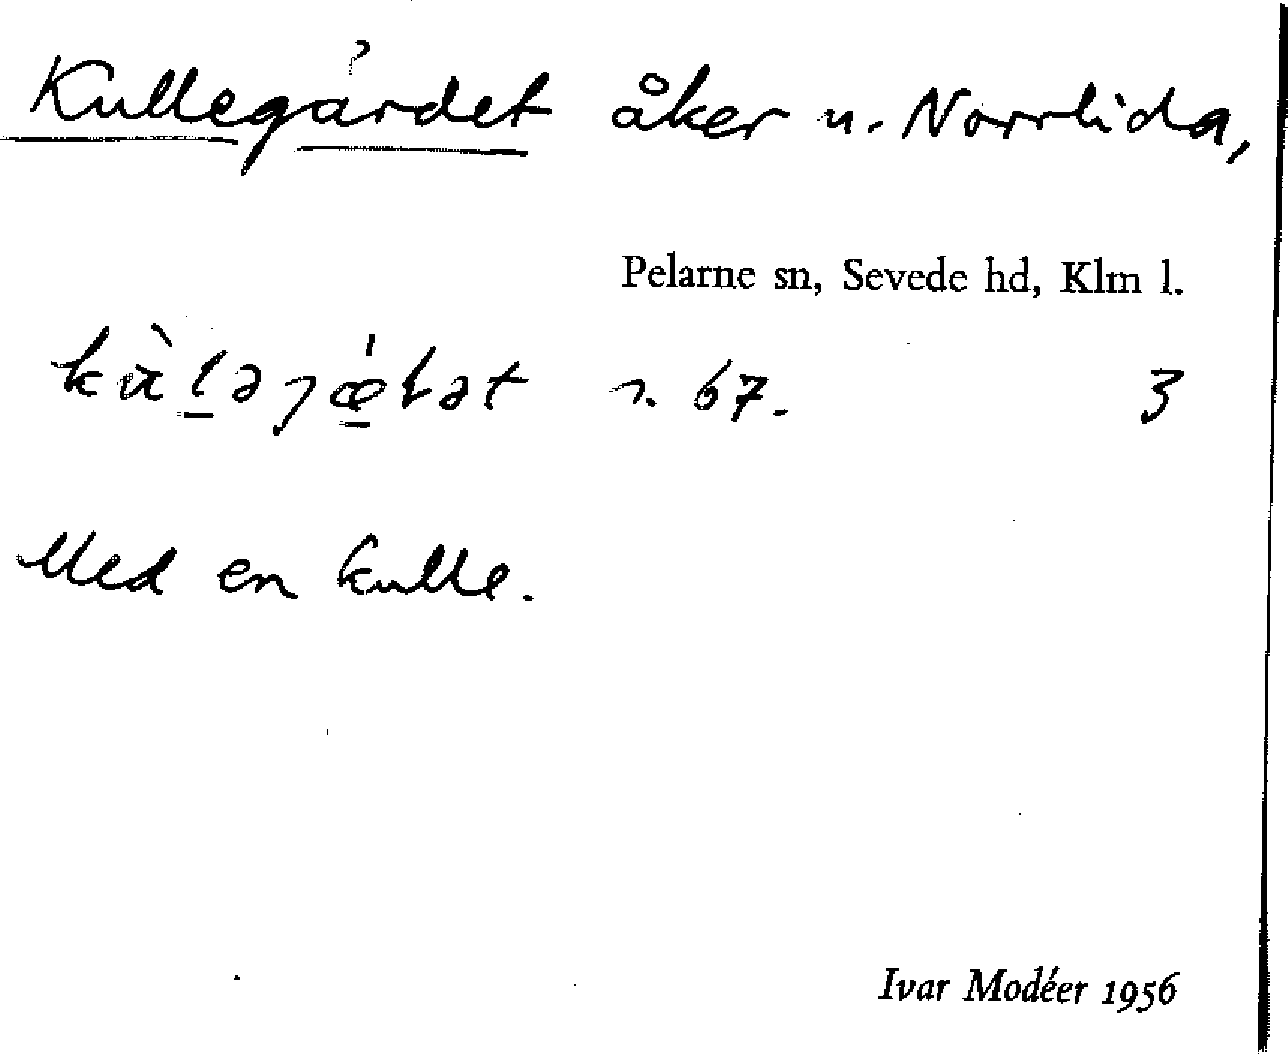 Kullegärdet åker u. Norrlida,
Pelarne sn, Sevede hd, Klm l.
n. 67. 3
Med en kulle.
Ivar Modéer 1956